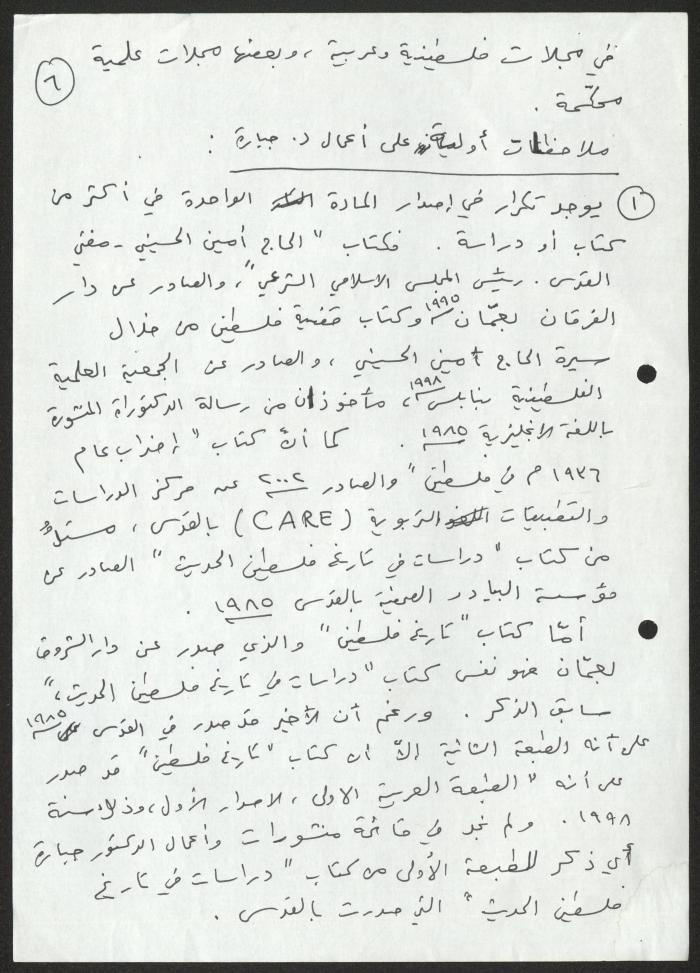 في مجلات فلسطينية وعربية ، وبعضها مجلات علمية
٦
محكّمة .
ملاحظات أولية على أعمال د. جبارة :
١ يوجد تكرار في إصدار المادة الواحدة في أكثر من
كتاب أو دراسة . فكتاب " الحاج أمين الحسيني - مفتي
القدس . رئيس المجلس الاسلامي الشرعي " ، والصادر عن دار
الفرقان بعمّان ١٩٩٥ وكتاب قضية فلسطين من خلال
سيرة الحاج أمين الحسيني ، والصادر عن الجمعية العلمية
الفلسطينية بنابلس ١٩٩٨ ، مأخوذان من رسالة الدكتوراة المنشورة
باللغة الانجليزية ١٩٨٥ . كما أنّ كتاب " إضراب عام
١٩٣٦ م في فلسطين " والصادر ٢٠٠٢ عن مركز الدراسات
والتطبيقات التربوية (CARE) بالقدس ، مستلّ
من كتاب " دراسات في تاريخ فلسطين الحديث " الصادر عن
مؤسسة البيادر الصحفية بالقدس ١٩٨٥ .
أمّا كتاب " تاريخ فلسطين " والذي صدر عن دار الشروق
بعمّان فهو نفس كتاب " دراسات في تاريخ فلسطين الحديث " ،
سابق الذكر . ورغم أن الأخير قد صدر في القدس ١٩٨٥
على أنه الطبعة الثانية إلاّ أن كتاب " تاريخ فلسطين " قد صدر
على أنه " الطبعة العربية الاولى ، الاصدار الأول ، وذلك سنة
١٩٩٨ . ولم نجد في قائمة منشورات وأعمال الدكتور جبارة
أي ذكر للطبعة الأولى من كتاب " دراسات في تاريخ
فلسطين الحديث " التي صدرت بالقدس .